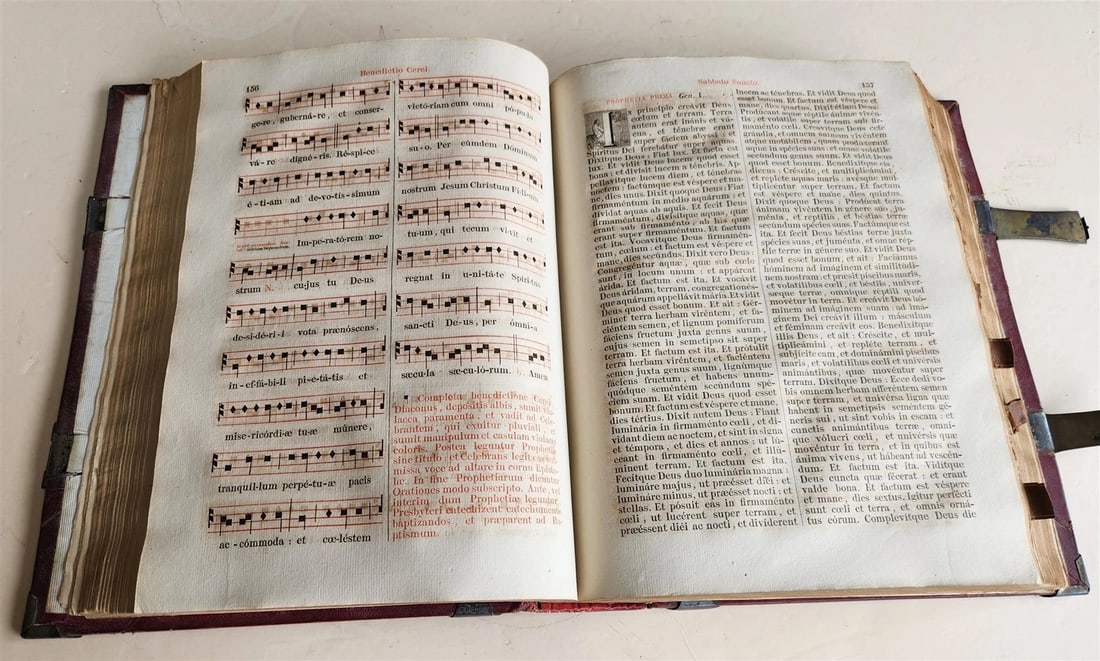 156
Benedictio Cerei.
ge-re, guberná-re, et conser-
vá-re digné-ris. Ré-spi-ce
é-ti-am ad de-vo-tis-simum
Im-pe-ra-tó-rem no-
strum N. cu-jus tu De-us
de-si-dé-ri-i vota prænóscens,
in-ef-fá-bi-li pi-e-tá-tis et
mise-ricórdi-æ tu-æ múnere,
tranquíl-lum perpé-tu-æ pacis
ac-cómmoda : et cœ-léstem
victó-riam cum omni pó-pu-lo
su-o. Per eúmdem Dóminum
nostrum Jesum Christum Fí-li-um
tu-um, qui tecum vi-vit et
regnat in u-ni-tá-te Spíri-tus
san-cti De-us, per ómni-a
sæ-cu-la sæ-cu-ló-rum. ℟. Amen
Completa benedictione Cerei,
Diaconus, depositis albis, sumit vio-
lacea paramenta, et vadit ad Cele-
brantem; qui exuitur pluviali, et
sumit manipulum et casulam violacei
coloris. Postea leguntur Prophetiæ
sine titulo : et Celebrans legit eas sub-
missa voce ad altare in cornu Episto-
læ. In fine Prophetiarum dicuntur
Orationes modo subscripto. Ante, vel
interim dum Prophetiæ leguntur,
Presbyteri catechizent catechumenos
baptizandos, et præparent ad Ba-
ptismum.
Sabbado Sancto.
157
PROPHETIA PRIMA Gen. I.
In principio creávit Deus
cœlum et terram. Terra
autem erat inánis et vá-
cua, et ténebræ erant
super fáciem abýssi : et
Spíritus Dei ferebátur super aquas.
Dixítque Deus : Fiat lux. Et facta est
lux. Et vidit Deus lucem quod esset
bona : et divísit lucem a ténebris. Ap-
pellavítque lucem diem, et ténebras
noctem : factúmque est véspere et ma-
ne, dies unus. Dixit quoque Deus : Fiat
firmaméntum in médio aquárum : et
dívidat aquas ab aquis. Et fecit Deus
firmaméntum, divisítque aquas, quæ
erant sub firmaménto ab his quæ
erant super firmaméntum. Et factum
est ita. Vocavítque Deus firmamén-
tum, cœlum : et factum est véspere et
mane, dies secúndus. Dixit vero Deus :
Congregéntur aquæ, quæ sub cœlo
sunt, in locum unum : et appáreat
árida. Et factum est ita. Et vocávit
Deus áridam, terram, congregatiónés-
que aquárum appellávit mária. Et vidit
Deus quod esset bonum. Et ait : Gér-
minet terra herbam viréntem, et fa-
ciéntem semen, et lignum pomíferum
fáciens fructum juxta genus suum,
cujus semen in semetípso sit super
terram. Et factum est ita. Et prótulit
terra herbam viréntem, et faciéntem
semen juxta genus suum, lignúmque
fáciens fructum, et habens unum-
quódque seméntem secúndum spé-
ciem suam. Et vidit Deus quod esset
bonum. Et factum est véspere et mane,
dies tértius. Dixit autem Deus : Fiant
luminária in firmaménto cœli, et di-
vidant diem ac noctem, et sint in signa
et témpora, et dies et annos : ut lú-
ceant in firmaménto cœli, et illú-
minent terram. Et factum est ita.
Fecítque Deus duo luminária magna :
lumináre majus, ut præésset diéi : et
lumináre minus, ut præésset nocti : et
stellas. Et pósuit eas in firmaménto
cœli, ut lucérent super terram, et
præéssent diéi ac nocti, et divíderent
lucem ac ténebras. Et vidit Deus quod
esset bonum. Et factum est véspere et
mane, dies quartus. Dixit étiam Deus :
Prodúcant aquæ réptile ánimæ vivén-
tis, et volátile super terram sub fir-
maménto cœli. Creavítque Deus cete
grándia, et omnem ánimam vivéntem
atque motábilem, quam prodúxerant
aquæ in spécies suas : et omne volátile
secúndum genus suum. Et vidit Deus
quod esset bonum. Benedixítque eis,
dicens : Créscite, et multiplicámini,
et repléte aquas maris : avésque mul-
tiplicéntur super terram. Et factum
est véspere et mane, dies quintus.
Dixit quoque Deus : Prodúcat terra
ánimam vivéntem in génere suo, ju-
ménta, et reptília, et béstias terræ
secúndum spécies suas. Factúmque est
ita. Et fecit Deus béstias terræ juxta
spécies suas, et juménta, et omne rép-
tile terræ in génere suo. Et vidit Deus
quod esset bonum, et ait : Faciámus
hóminem ad imáginem et similitúdi-
nem nostram : et præsit píscibus maris,
et volatílibus cœli, et béstiis, univer-
sæque terræ, omníque réptili quod
movétur in terra. Et creávit Deus hó-
minem ad imáginem suam : ad imá-
ginem Dei creávit illum : másculum
et féminam creávit eos. Benedixítque
illis Deus, et ait : Créscite, et mul-
tiplicámini, et repléte terram, et
subjícite eam, et dominámini píscibus
maris, et volatílibus cœli et univérsis
animántibus, quæ movéntur super
terram. Dixítque Deus : Ecce dedi vo-
bis omnem herbam afferéntem semen
super terram, et univérsa ligna quæ
habent in semetípsis seméntem gé-
neris sui, ut sint vobis in escam : et
cunctis animántibus terræ, omní-
que vólucri cœli, et univérsis quæ
movéntur in terra, et in quibus est
ánima vivens, ut hábeant ad vescén-
dum. Et factum est ita. Vidítque
Deus cuncta quæ fécerat : et erant
valde bona. Et factum est véspere
et mane, dies sextus. Igitur perfécti
sunt cœli et terra, et omnis orná-
tus eórum. Complevítque Deus die